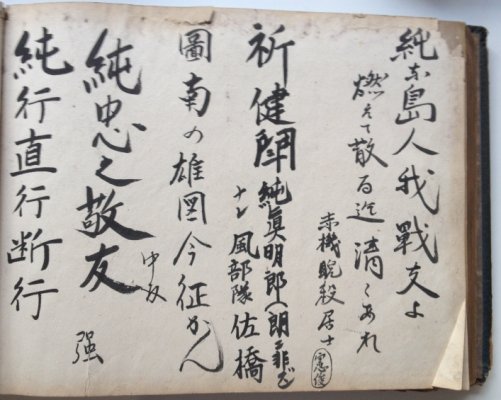 純な島人我戰友よ
燃えて散る迄清くあれ
赤機睨殺居士
祈健鬪
純眞明郎(朗ニ非ズ)
ナレ風部隊佐橋
圖南の雄図今征かん
純忠之敬友
中友
强
純行直行断行